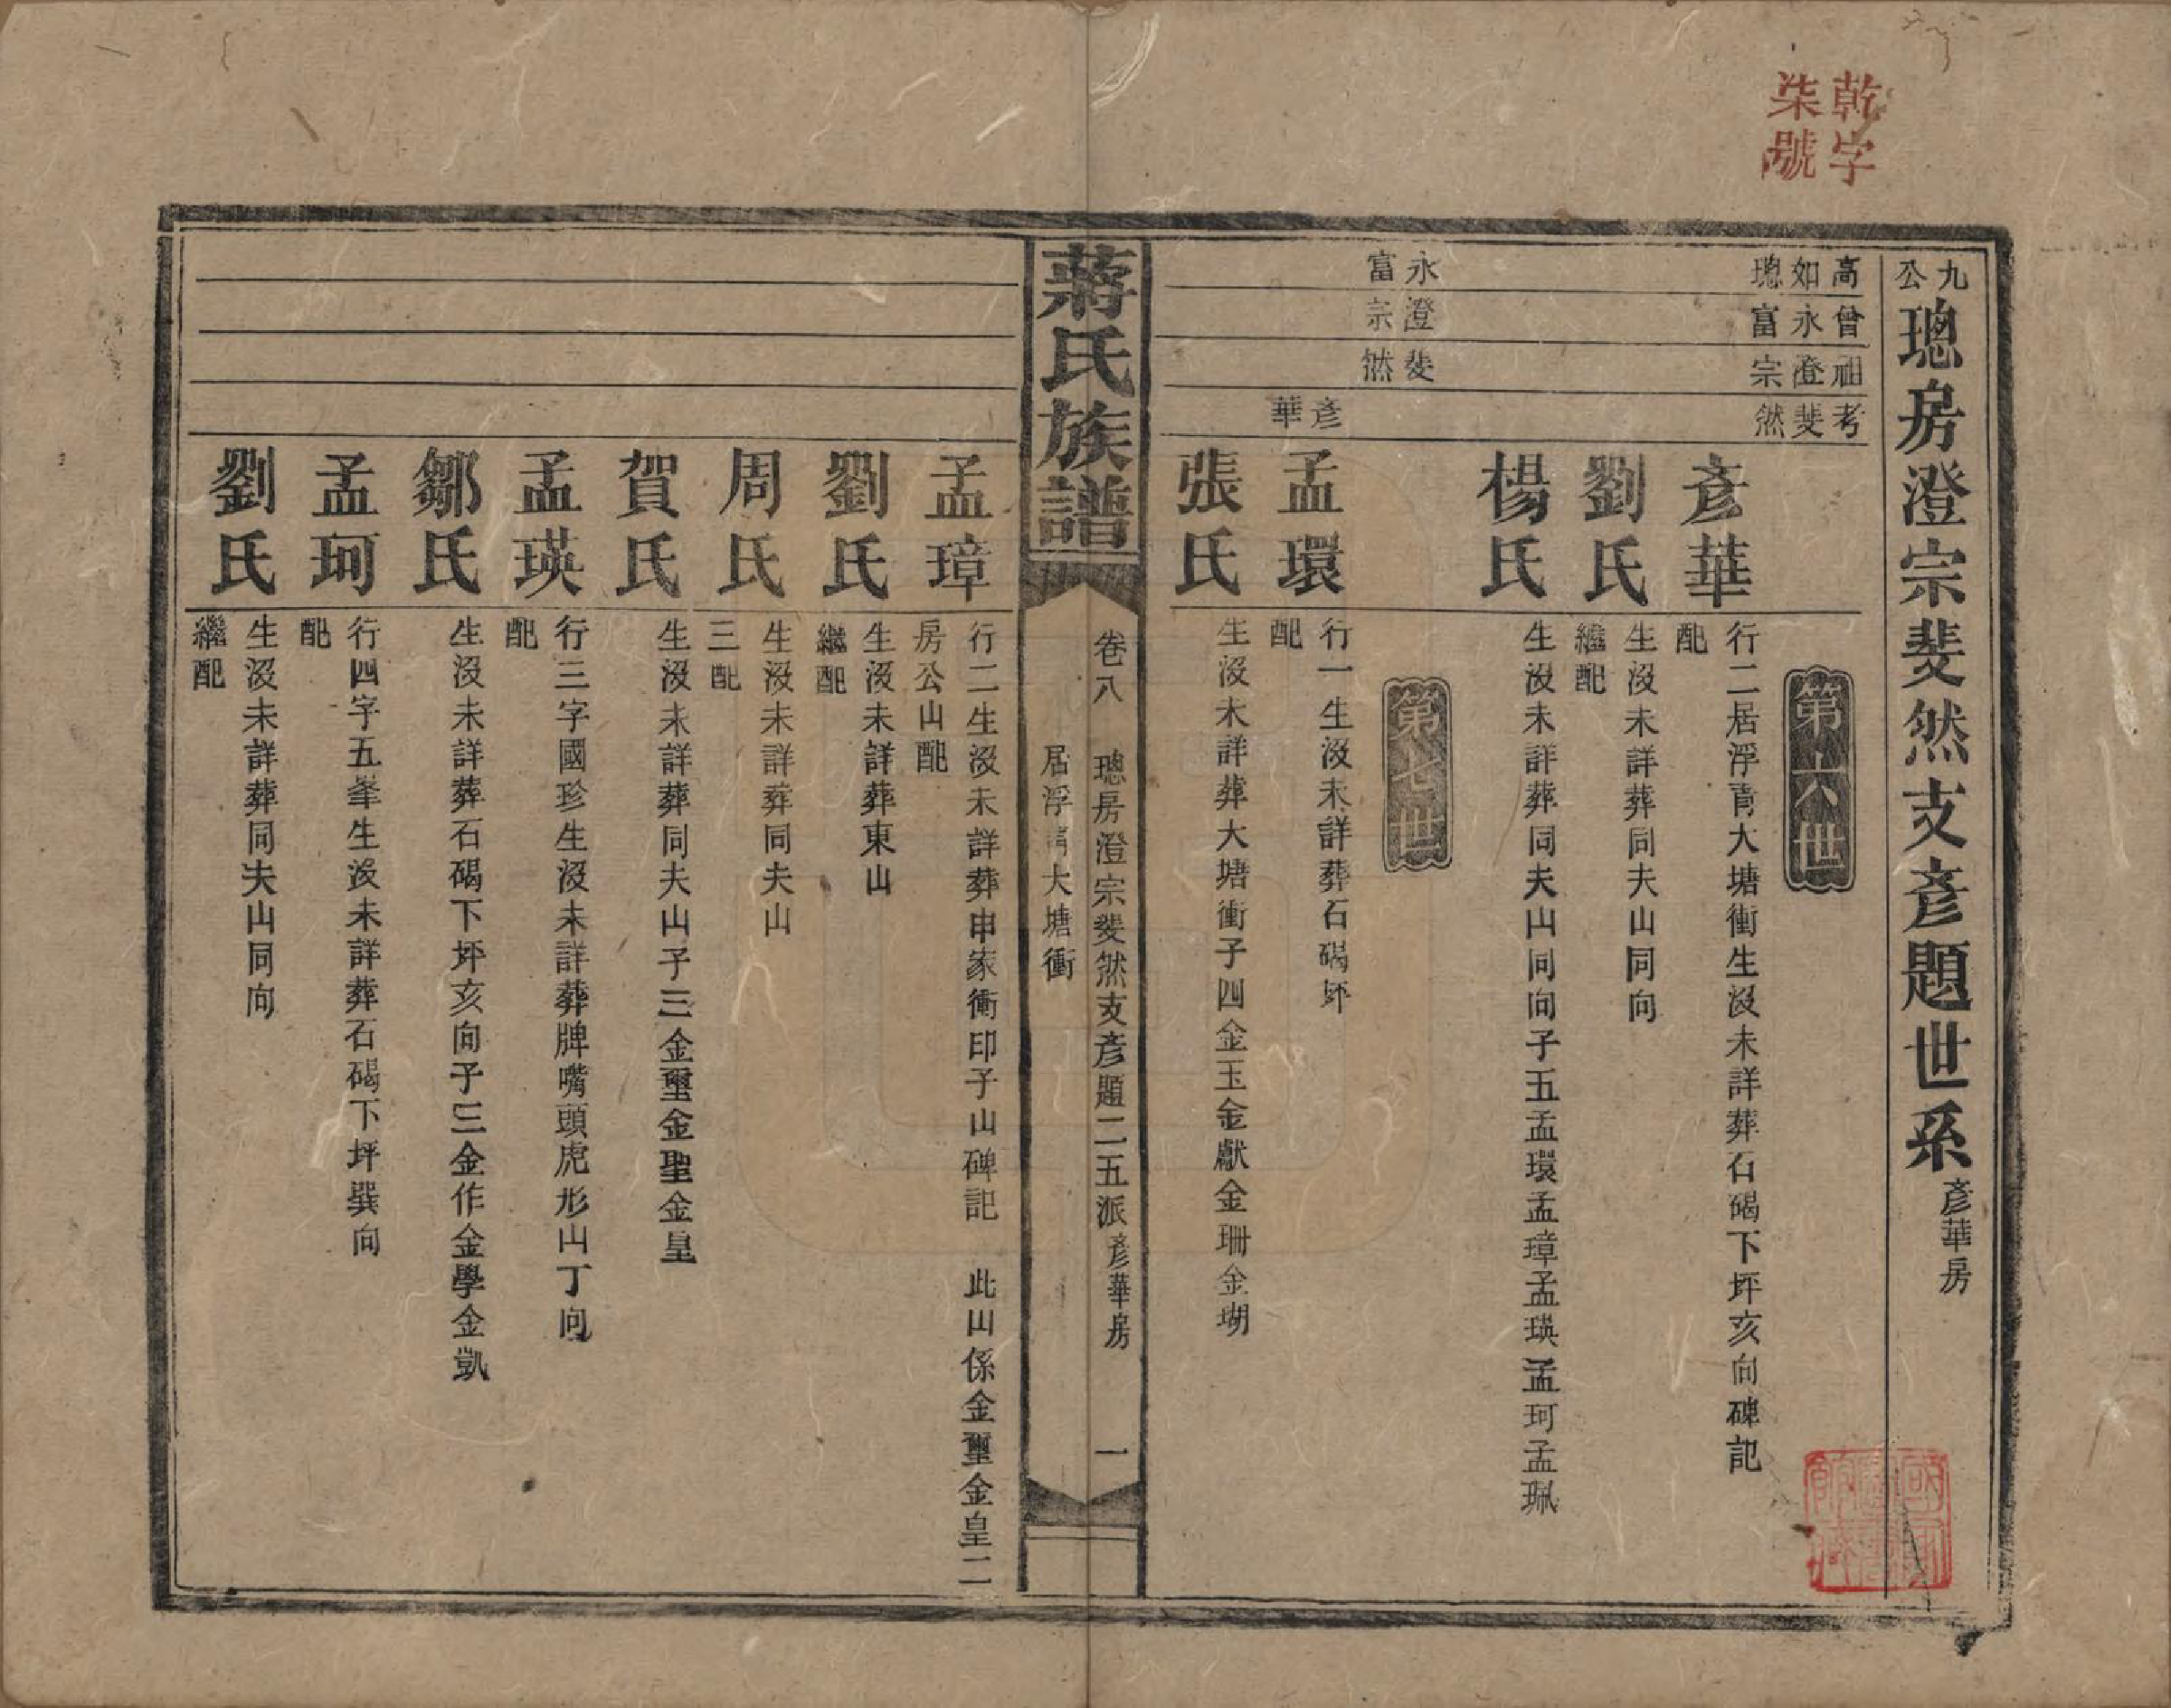 乾字
柒號
九公璁房澄宗斐然支彥題世系彥華房
高如璁
曾永富
祖澄宗
考斐然
第六世
彥華
行二居浮青大塘衝生沒未詳葬石碣下坪亥向碑記
配
劉氏
生沒未詳葬同夫山同向
繼配
楊氏
生沒未詳葬同夫山同向子五孟環孟璋孟瑛孟珂孟珮
永富
澄宗
斐然
第七世
彥華
孟環
行一生沒未詳葬石碣坪
配
張氏
生沒未詳葬大塘衝子四金玉金獻金珊金瑚
蔣氏族譜
卷八 璁房澄宗斐然支彥題二五派彥華房 一
居浮青大塘衝
孟璋
行二生沒未詳葬申家衝印子山碑記 此山係金璽金皇二
房公山配
劉氏
生沒未詳葬東山
繼配
周氏
生沒未詳葬同夫山
三配
賀氏
生沒未詳葬同夫山子三金璽金聖金皇
孟瑛
行三字國珍生沒未詳葬牌嘴頭虎形山丁向
配
鄒氏
生沒未詳葬石碣下坪亥向子三金作金學金凱
孟珂
行四字五峯生沒未詳葬石碣下坪巽向
配
劉氏
生沒未詳葬同夫山同向
繼配